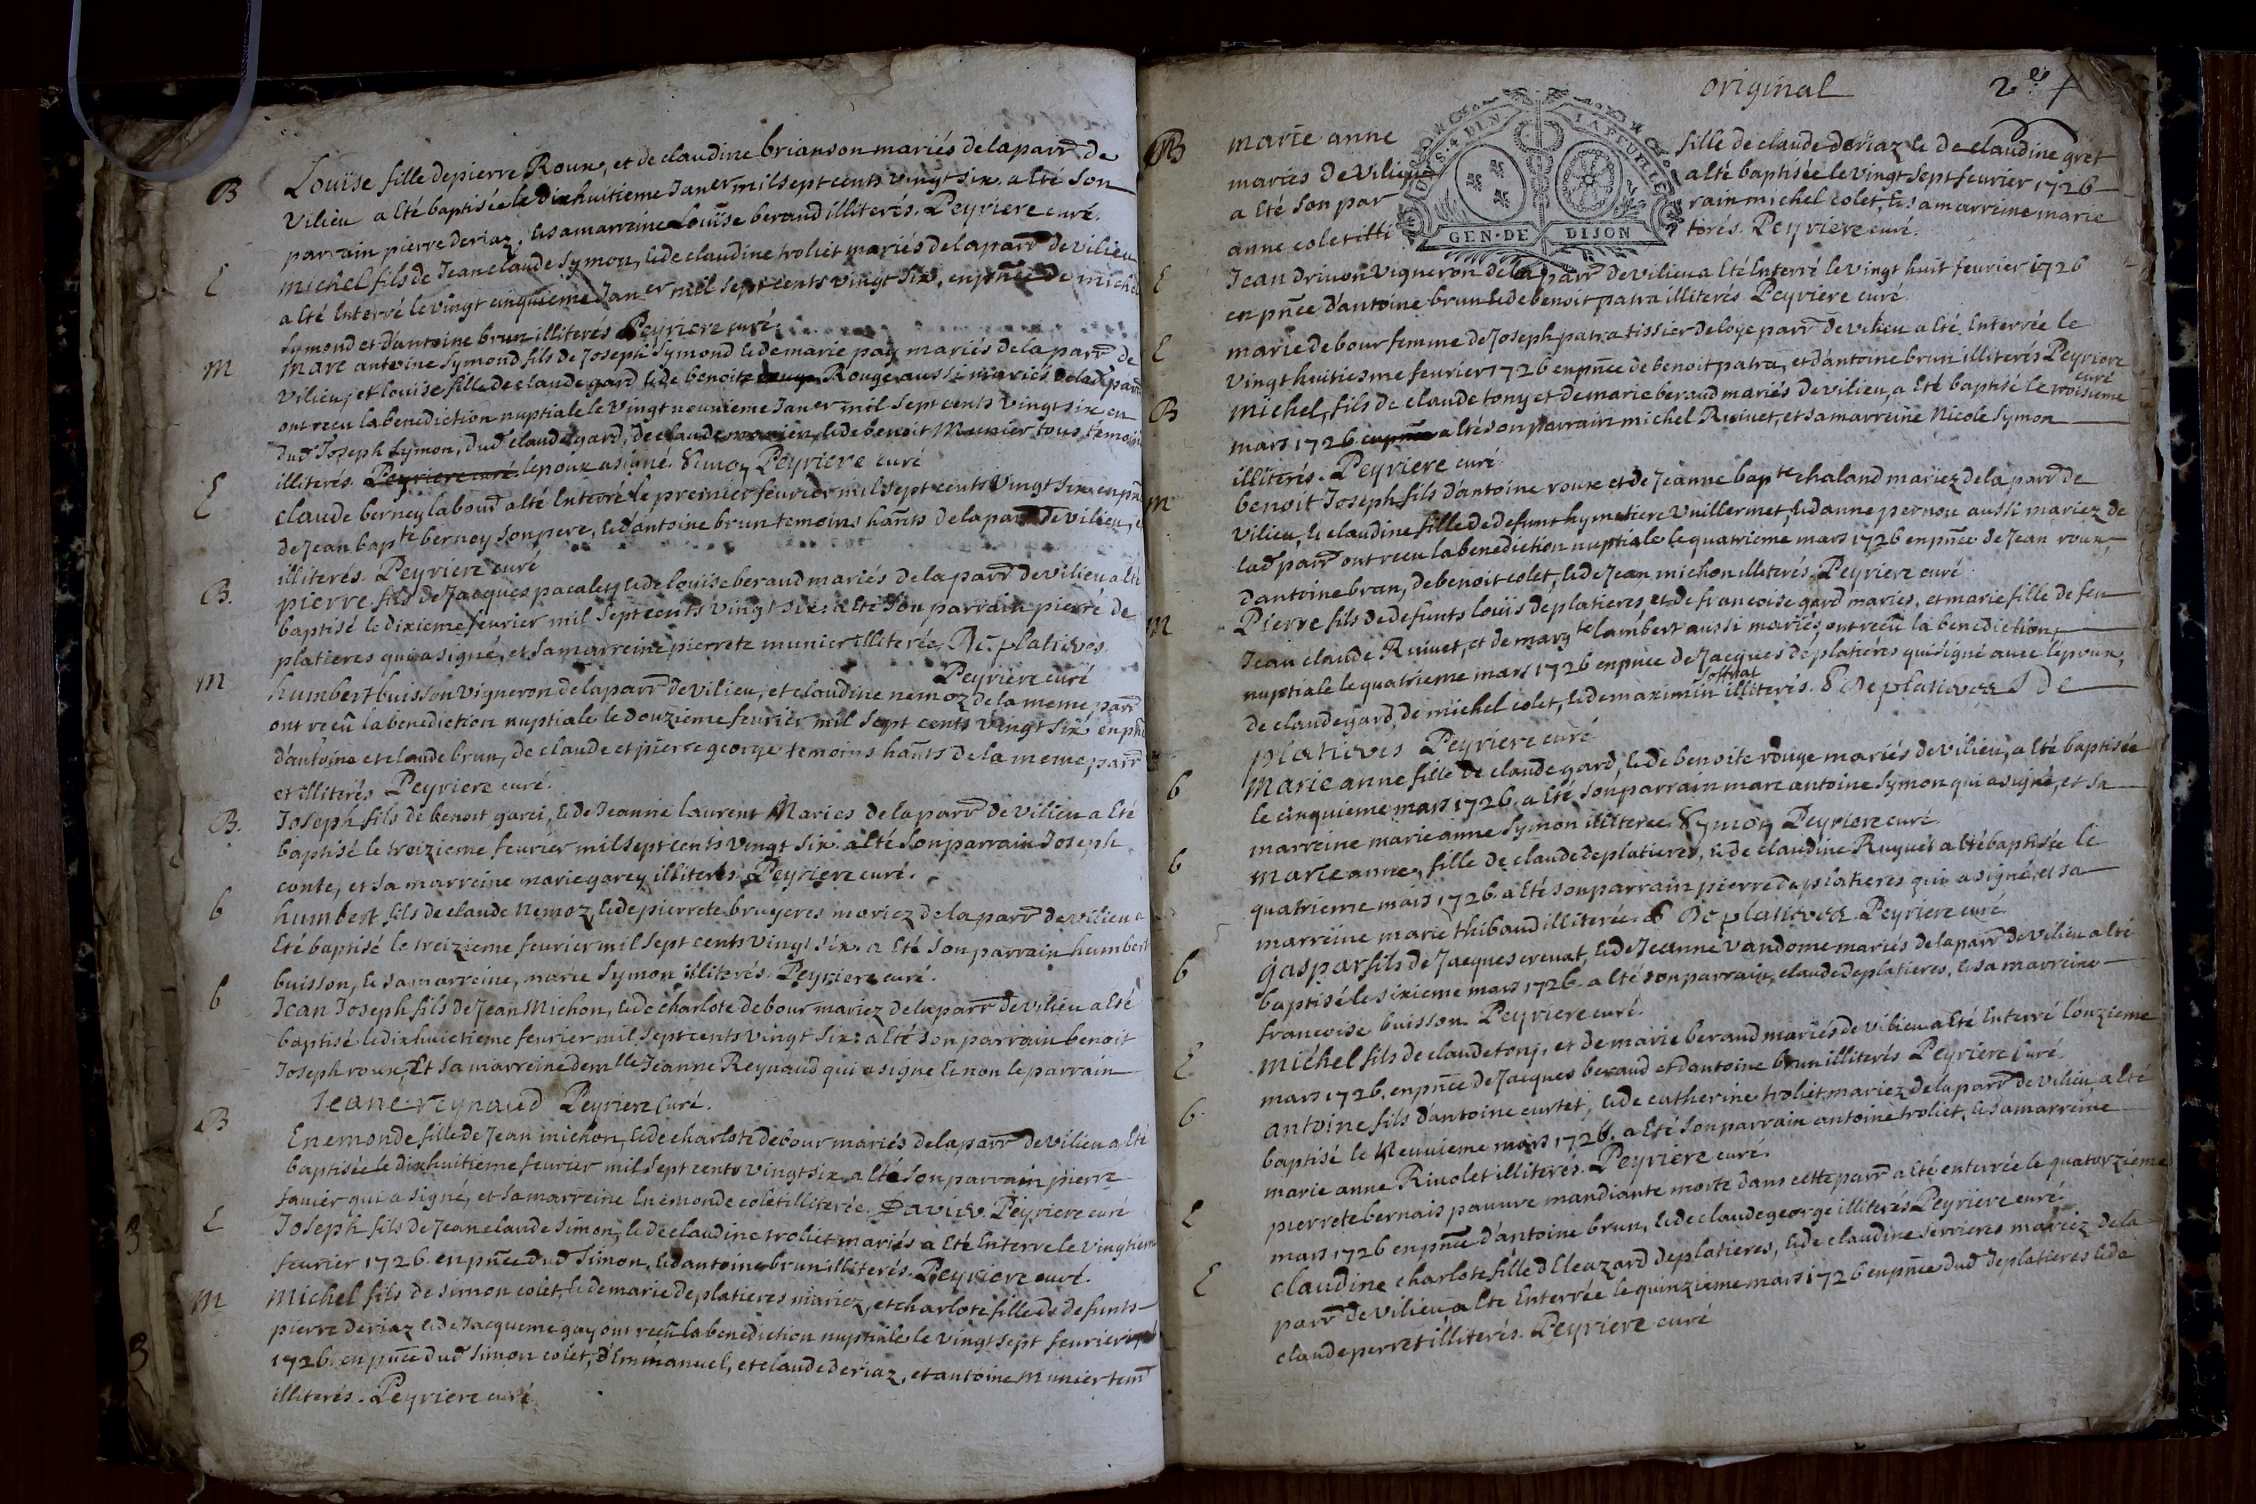 B Louïse fille de pierre Roux, et de claudine brianson mariés de la parr de
Vilieu a Eté baptisée le dixhuitieme Janer mil sept cents vingt six. a Eté son
parrain pierre deriaz, & sa marreine Louïse beraud illiterés. Peyriere curé.
E michel fils de Jean claude Symon, & de claudine troliet mariés de la parr de vilieu
a Eté Enterré le vingt cinquieme Janer mil sept cents vingt six, en pñce de michel
Symond et d'antoine brun illiteres Peyriere curé.
M Marc antoine Symond fils de Joseph Symond & de marie pay mariés de la parr de
Vilieu, et louise fille de claude gard & de benoite Rouge aussi mariés de lad parr
ont recu la benediction nuptiale le Vingt neuvieme Janer mil sept cents vingt six en
dud Joseph Symon, dud claude gard, de claude & de benoit Munier tous temoins
illiterés. Peyriere curé lepoux a signé. Simon Peyriere curé
E claude berney laboud a Eté Enterré le premier fevrier mil sept cents vingt six en pñce
de Jean bapte berney son pere, & d'antoine brun temoins hañts de la parr de vilieu, &
illiterés. Peyriere curé
B. pierre fils de Jacques pacalet & de louïse beraud mariés de la parr de vilieu a Eté
baptisé le dixieme fevrier mil sept cents vingt six. a Eté son parrain pierre de
platieres qui a signé, et sa marreine pierrete munier illiterée. De platieres.
Peyriere curé
M humbert buisson vigneron de la parr de vilieu, et claudine nemoz de la meme parr
ont reçu la benediction nuptiale le douzieme fevrier mil sept cents vingt six en pñce
d'antoine et claude brun, de claude et pierre george temoins hañts de la meme parr
et illiterés Peyriere curé.
B. Joseph fils de benoit garei, & de Jeanne laurent Mariés de la parr de vilieu a Eté
baptisé le treizieme fevrier mil sept cents vingt six. a Eté son parrain Joseph
conte, et sa marreine marie garey illiterés. Peyriere curé.
b humbert fils de claude Nemoz, & de pierrete bruyeres mariez de la parr de vilieu a
Eté baptisé le treizieme fevrier mil sept cents vingt six. a Eté son parrain humbert
buisson, & sa marreine, marie Symon illiterés. Peyriere curé.
b Jean Joseph fils de Jean Michon, & de charlote debour mariez de la parr de vilieu a Eté
baptisé le dixhuictieme fevrier mil sept cents vingt six: a Eté son parrain benoit
Joseph roux, Et sa marreine demlle Jeanne Reynaud qui a signe & non le parrain
Jeane reynaud Peyriere Curé.
B Enemonde fille de Jean michon, & de charlote debour mariés de la parr de vilieu a Eté
baptisée le dixhuitieme fevrier mil sept cents vingt six. a Eté son parrain pierre
favier qui a signé, et sa marreine Enemonde colet illiterée. Favier. Peyriere curé
E Joseph fils de Jean claude Simon, & de claudine troliet mariés a Eté Enterre le vingtiem
fevrier 1726 en pñce dud Simon, & d'antoine brun illiterés. Peyriere curé.
M Michel fils de Simon colet, & de marie deplatieres mariez, et charlote fille de defunts
pierre deriaz & de Jacqueme gay ont reçu la benediction nuptiale le vingt sept fevrier
1726. en pñce dud Simon colet, d'Emmanuel, et claude deriaz, et antoine Munier tem
illiterés. Peyriere curé
original 2e f
B marie anne fille de claude deriaz & de claudine gret
mariés de Vilieu a Eté baptisée le vingt sept fevrier 1726
a Eté son par rain michel colet, & sa marreine marie
anne colet illi terés. Peyriere curé.
GEN · DE DIJON
E Jean drivon vigneron de la parr de vilieu a Eté Enterré le vingt huit fevrier 1726
en pñce d'antoine brun & de benoit patra illiterés Peyriere curé.
E marie debour femme de Joseph patra tissier de loye parr de vilieu a Eté Enterrée le
vingt huitiesme fevrier 1726 en pñce de benoit patra, et d'antoine brun illiterés Peyriere
curé
B Michel, fils de claude tony et de marie beraud mariés de vilieu, a Eté baptisé le troisieme
mars 1726 a Eté son parrain michel Ruivet, et sa marreine Nicole Symon
illiterés. Peyriere curé.
M benoit Joseph fils d'antoine roux et de Jeanne bapte chaland mariez de la parr de
vilieu, & claudine fille de defunt hymetiere Vuillermet, & d'anne pernou aussi mariez de
lad parr ont recu la benediction nuptiale le quatrieme mars 1726 en pñce de Jean roux,
d'antoine brun, de benoit colet, & de Jean michon illiterés. Peyriere curé
M Pierre fils de defunts louïs deplatieres et de francoise gard mariés, et marie fille de feu
Jean claude Ruivet, et de margte lambert aussi mariés, ont reçu la benediction
nuptiale le quatrieme mars 1726 en pñce de Jacques deplatieres qui signé avec lepoux,
de claude gard, de michel colet, & de maximin soffrat illiterés. Deplatieres De
platieres Peyriere curé
b Marie anne fille de claude gard, & de benoite rouge mariés de vilieu, a Eté baptisée
le cinquieme mars 1726. a Eté son parrain marc antoine Symon qui a signé, et sa
marreine marie anne Symon illiterée. Symon Peyriere curé.
b marie anne, fille de claude deplatieres, & de claudine Ruynet a Eté baptisée le
quatrieme mars 1726. a Eté son parrain pierre deplatieres qui a signé, et sa
marreine marie thibaud illiterée. Deplatieres. Peyriere curé
b gaspar fils de Jacques crevat, & de Jeanne Vandome mariés de la parr de vilieu a Eté
baptisé le sixieme mars 1726. a Eté son parrain, claude deplatieres, & sa marreine
francoise buisson. Peyriere curé.
E Michel fils de claude tony, et de marie beraud mariés de vilieu a Eté Enterré l'onzieme
mars 1726. en pñce de Jacques beraud et d'antoine brun illiterés Peyriere Curé.
b antoine fils d'antoine curtet, & de catherine troliet mariez de la parr de vilieu a Eté
baptisé le Neuvieme mars 1726. a Eté son parrain antoine troliet, & sa marreine
marie anne Rivolet illiterés. Peyriere curé.
E pierrete bernais pauvre mandiante morte dans cette parr a Eté enterrée le quatorzieme
mars 1726 en pñce d'antoine brun, & de claude george illiterés Peyriere curé
E claudine charlote fille d'Eleazard deplatieres, & de claudine Serrieres mariez de la
parr de vilieu a Eté Enterrée le quinzieme mars 1726 en pñce dud deplatieres & de
claude perret illiterés. Peyriere curé